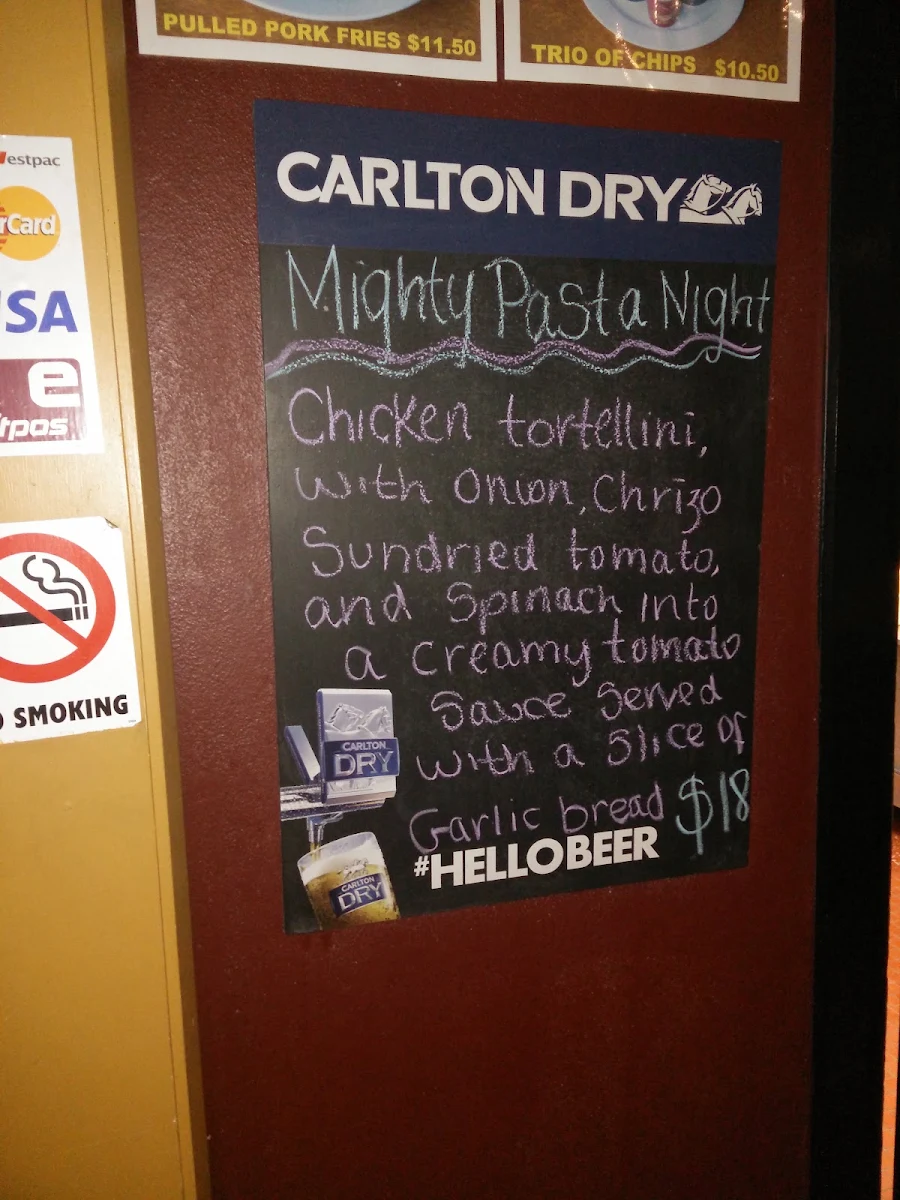 PULLED PORK FRIES $11.50
TRIO OF CHIPS $10.50
CARLTON DRY
Mighty Pasta Night
Chicken tortellini,
with onion, Chrizo
Sundried tomato,
and Spinach into
a creamy tomato
Sauce Served
with a Slice of
Garlic bread $18
#HELLOBEER
CARLTON
DRY
CARLTON
DRY
estpac
rCard
ISA
e
tpos
O SMOKING